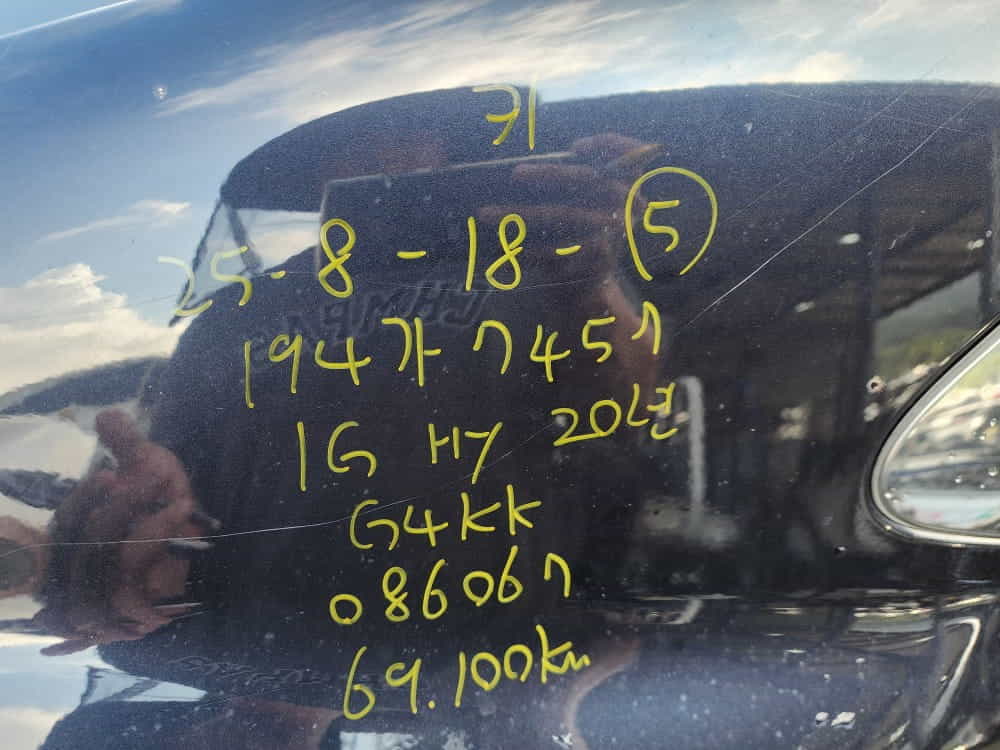 키
25-8-18-⑤
194가7457
IG HY 20년
G4KK
086067
69.100km